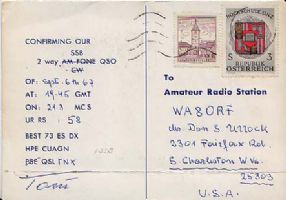 CONFIRMING OUR
SSB
2 way AM FONE QSO
CW
OF: Sept. 6th 67
AT: 19.45 GMT
ON: 21.3 MCS
UR RS: 58
BEST 73 ES DX
HPE CUAGN
PSE QSL TNX
Toni
HOCHSCHULE LINZ
S 3
REPUBLIK
ÖSTERREICH
To
Amateur Radio Station
WA8ORF
2301 Fairfax Rd.
S. Charleston W.Va.
25303
U.S.A.